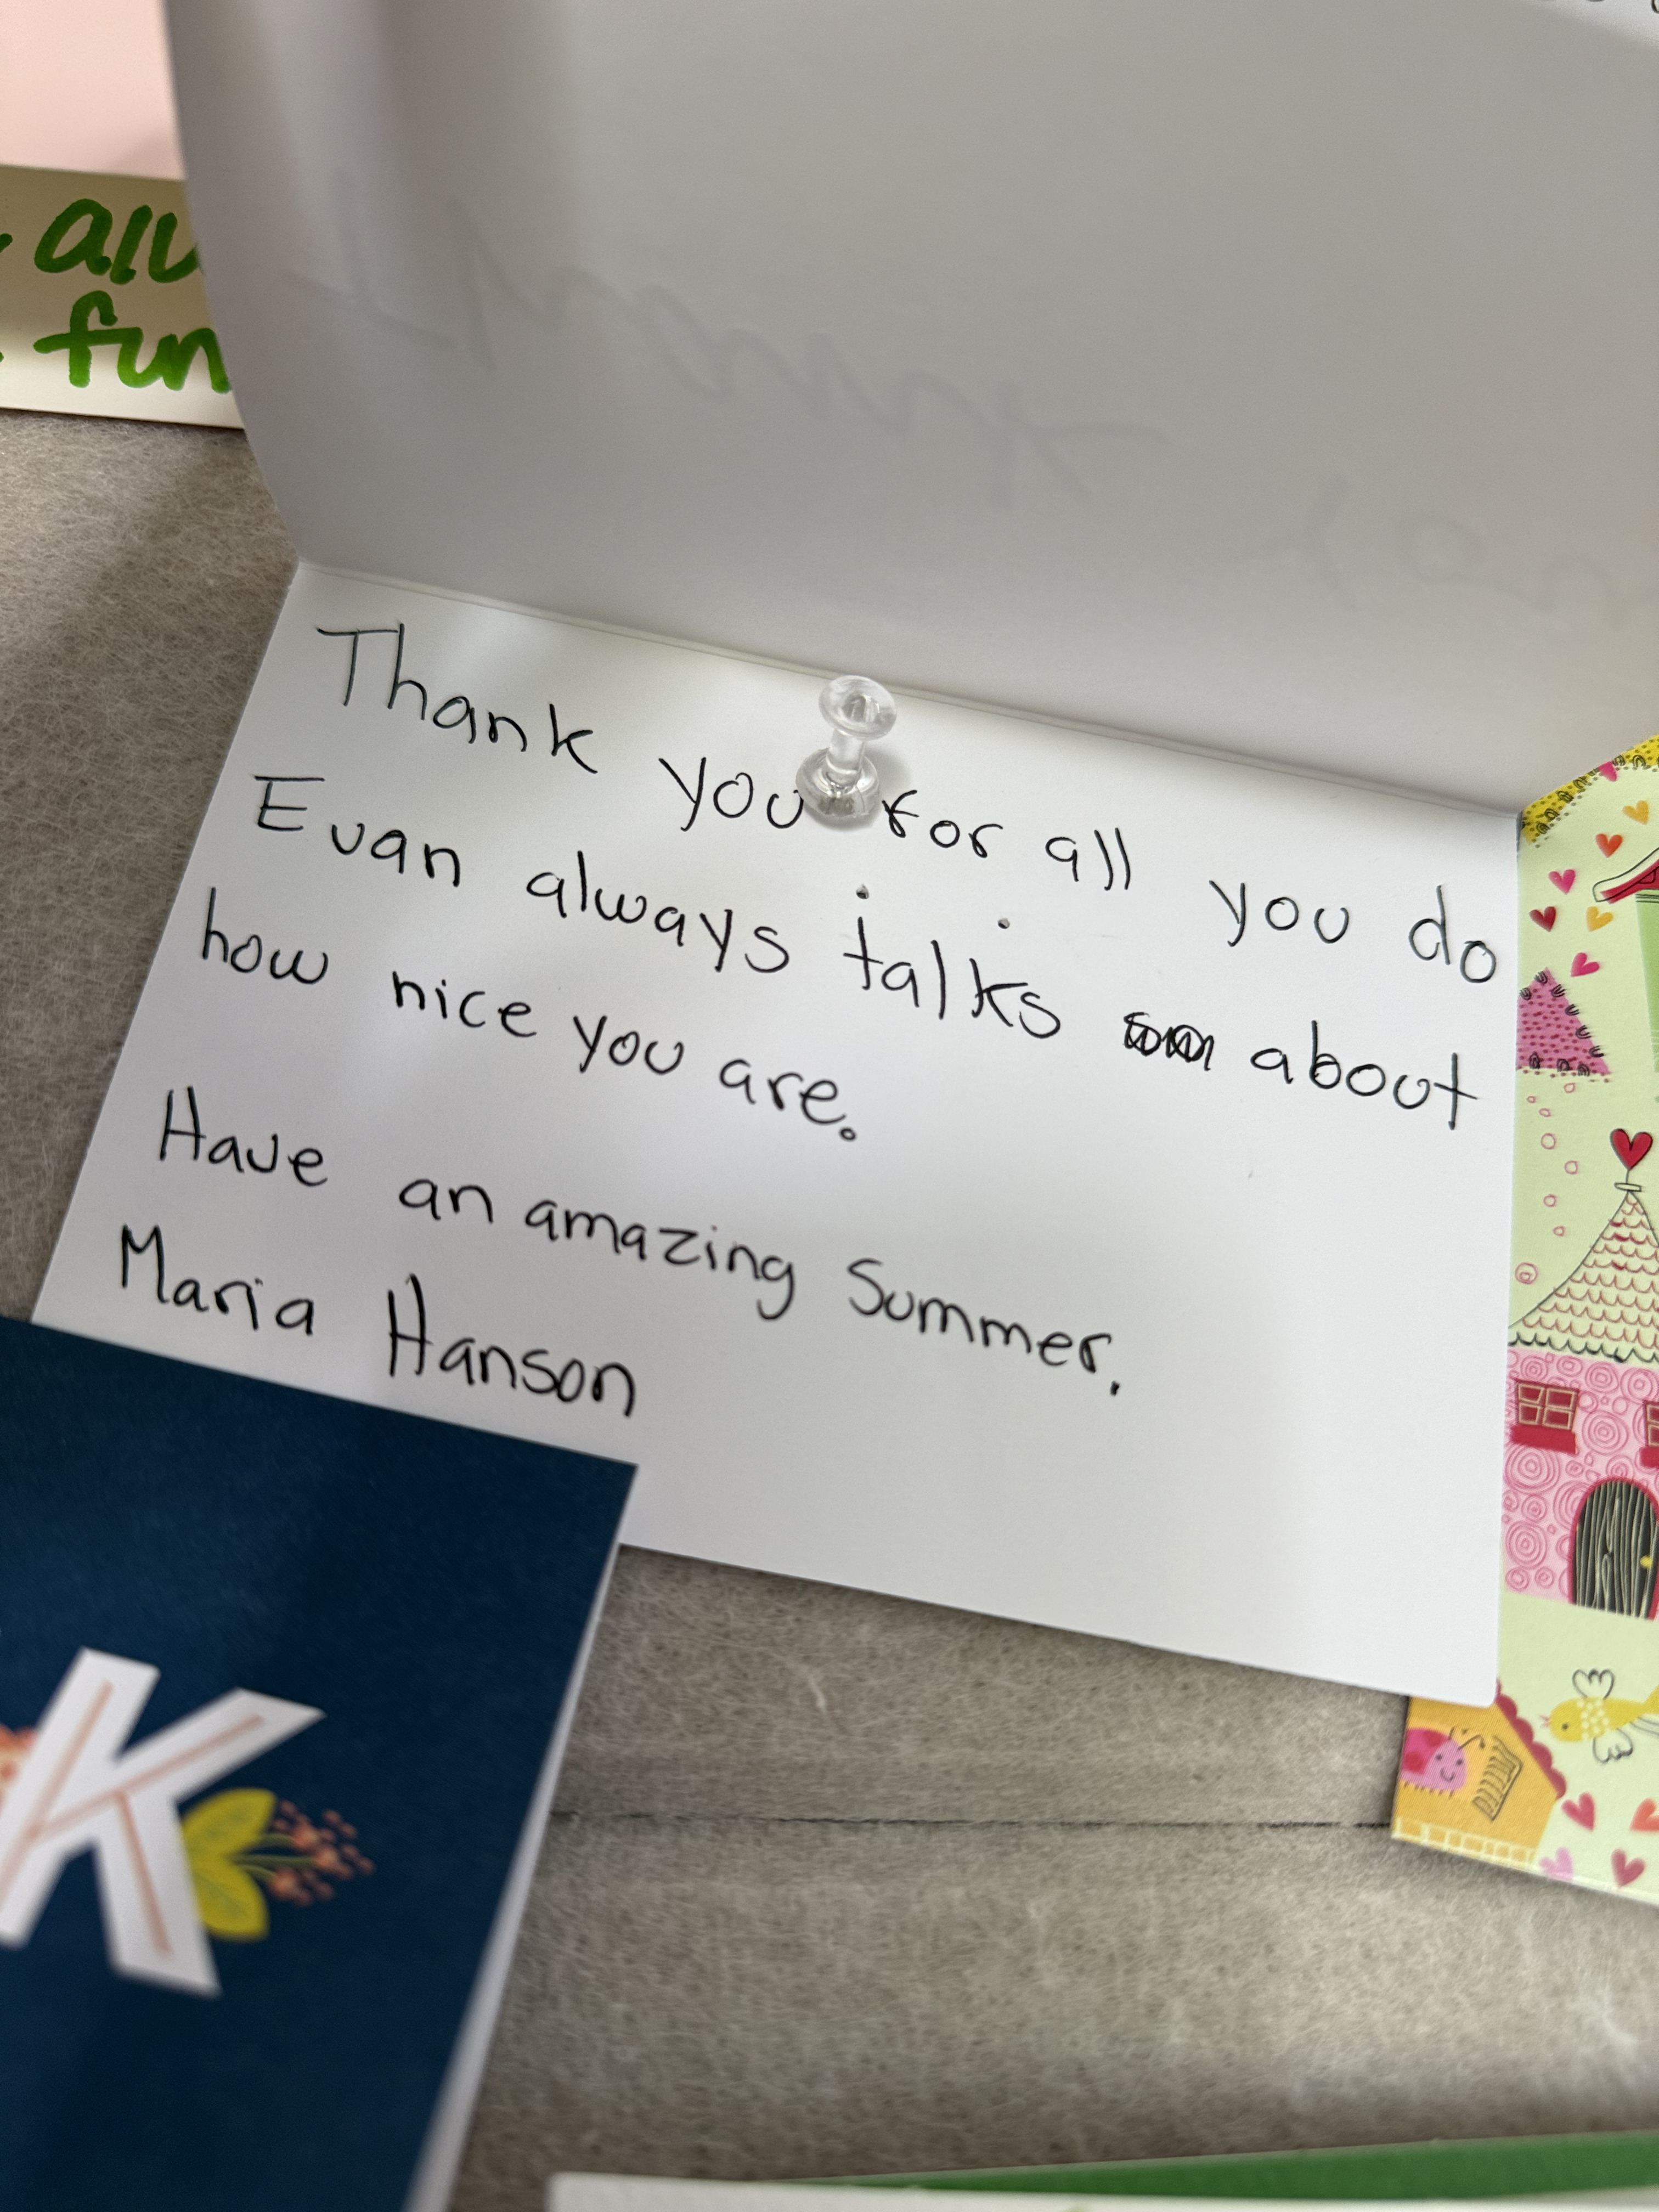 all
fun
Thank you for all you do
Evan always talks about
how nice you are.
Have an amazing Summer.
Maria Hanson
K